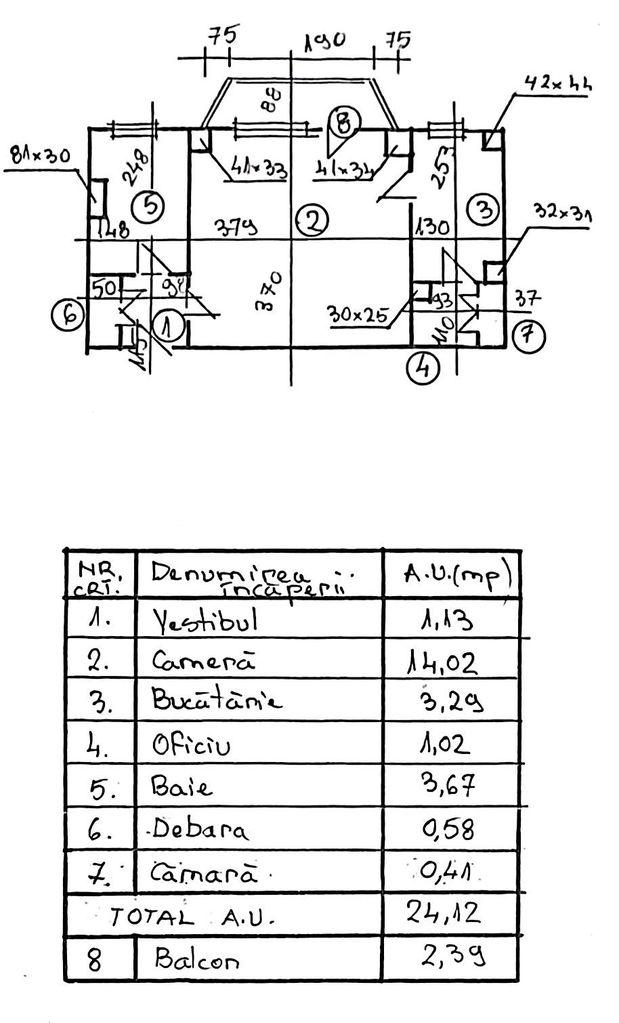 75 190 75
88
42×44
8
81×30
248
41×33
41×34
253
5
2
3
148
379
130
32×31
50
98
370
93
37
6
1
30×25
110
7
115
4
NR. CRT. Denumirea încăperii A.U.(mp)
1. Vestibul 1,13
2. Cameră 14,02
3. Bucătărie 3,29
4. Oficiu 1,02
5. Baie 3,67
6. Debara 0,58
7. Cămară 0,41
TOTAL A.U. 24,12
8 Balcon 2,39